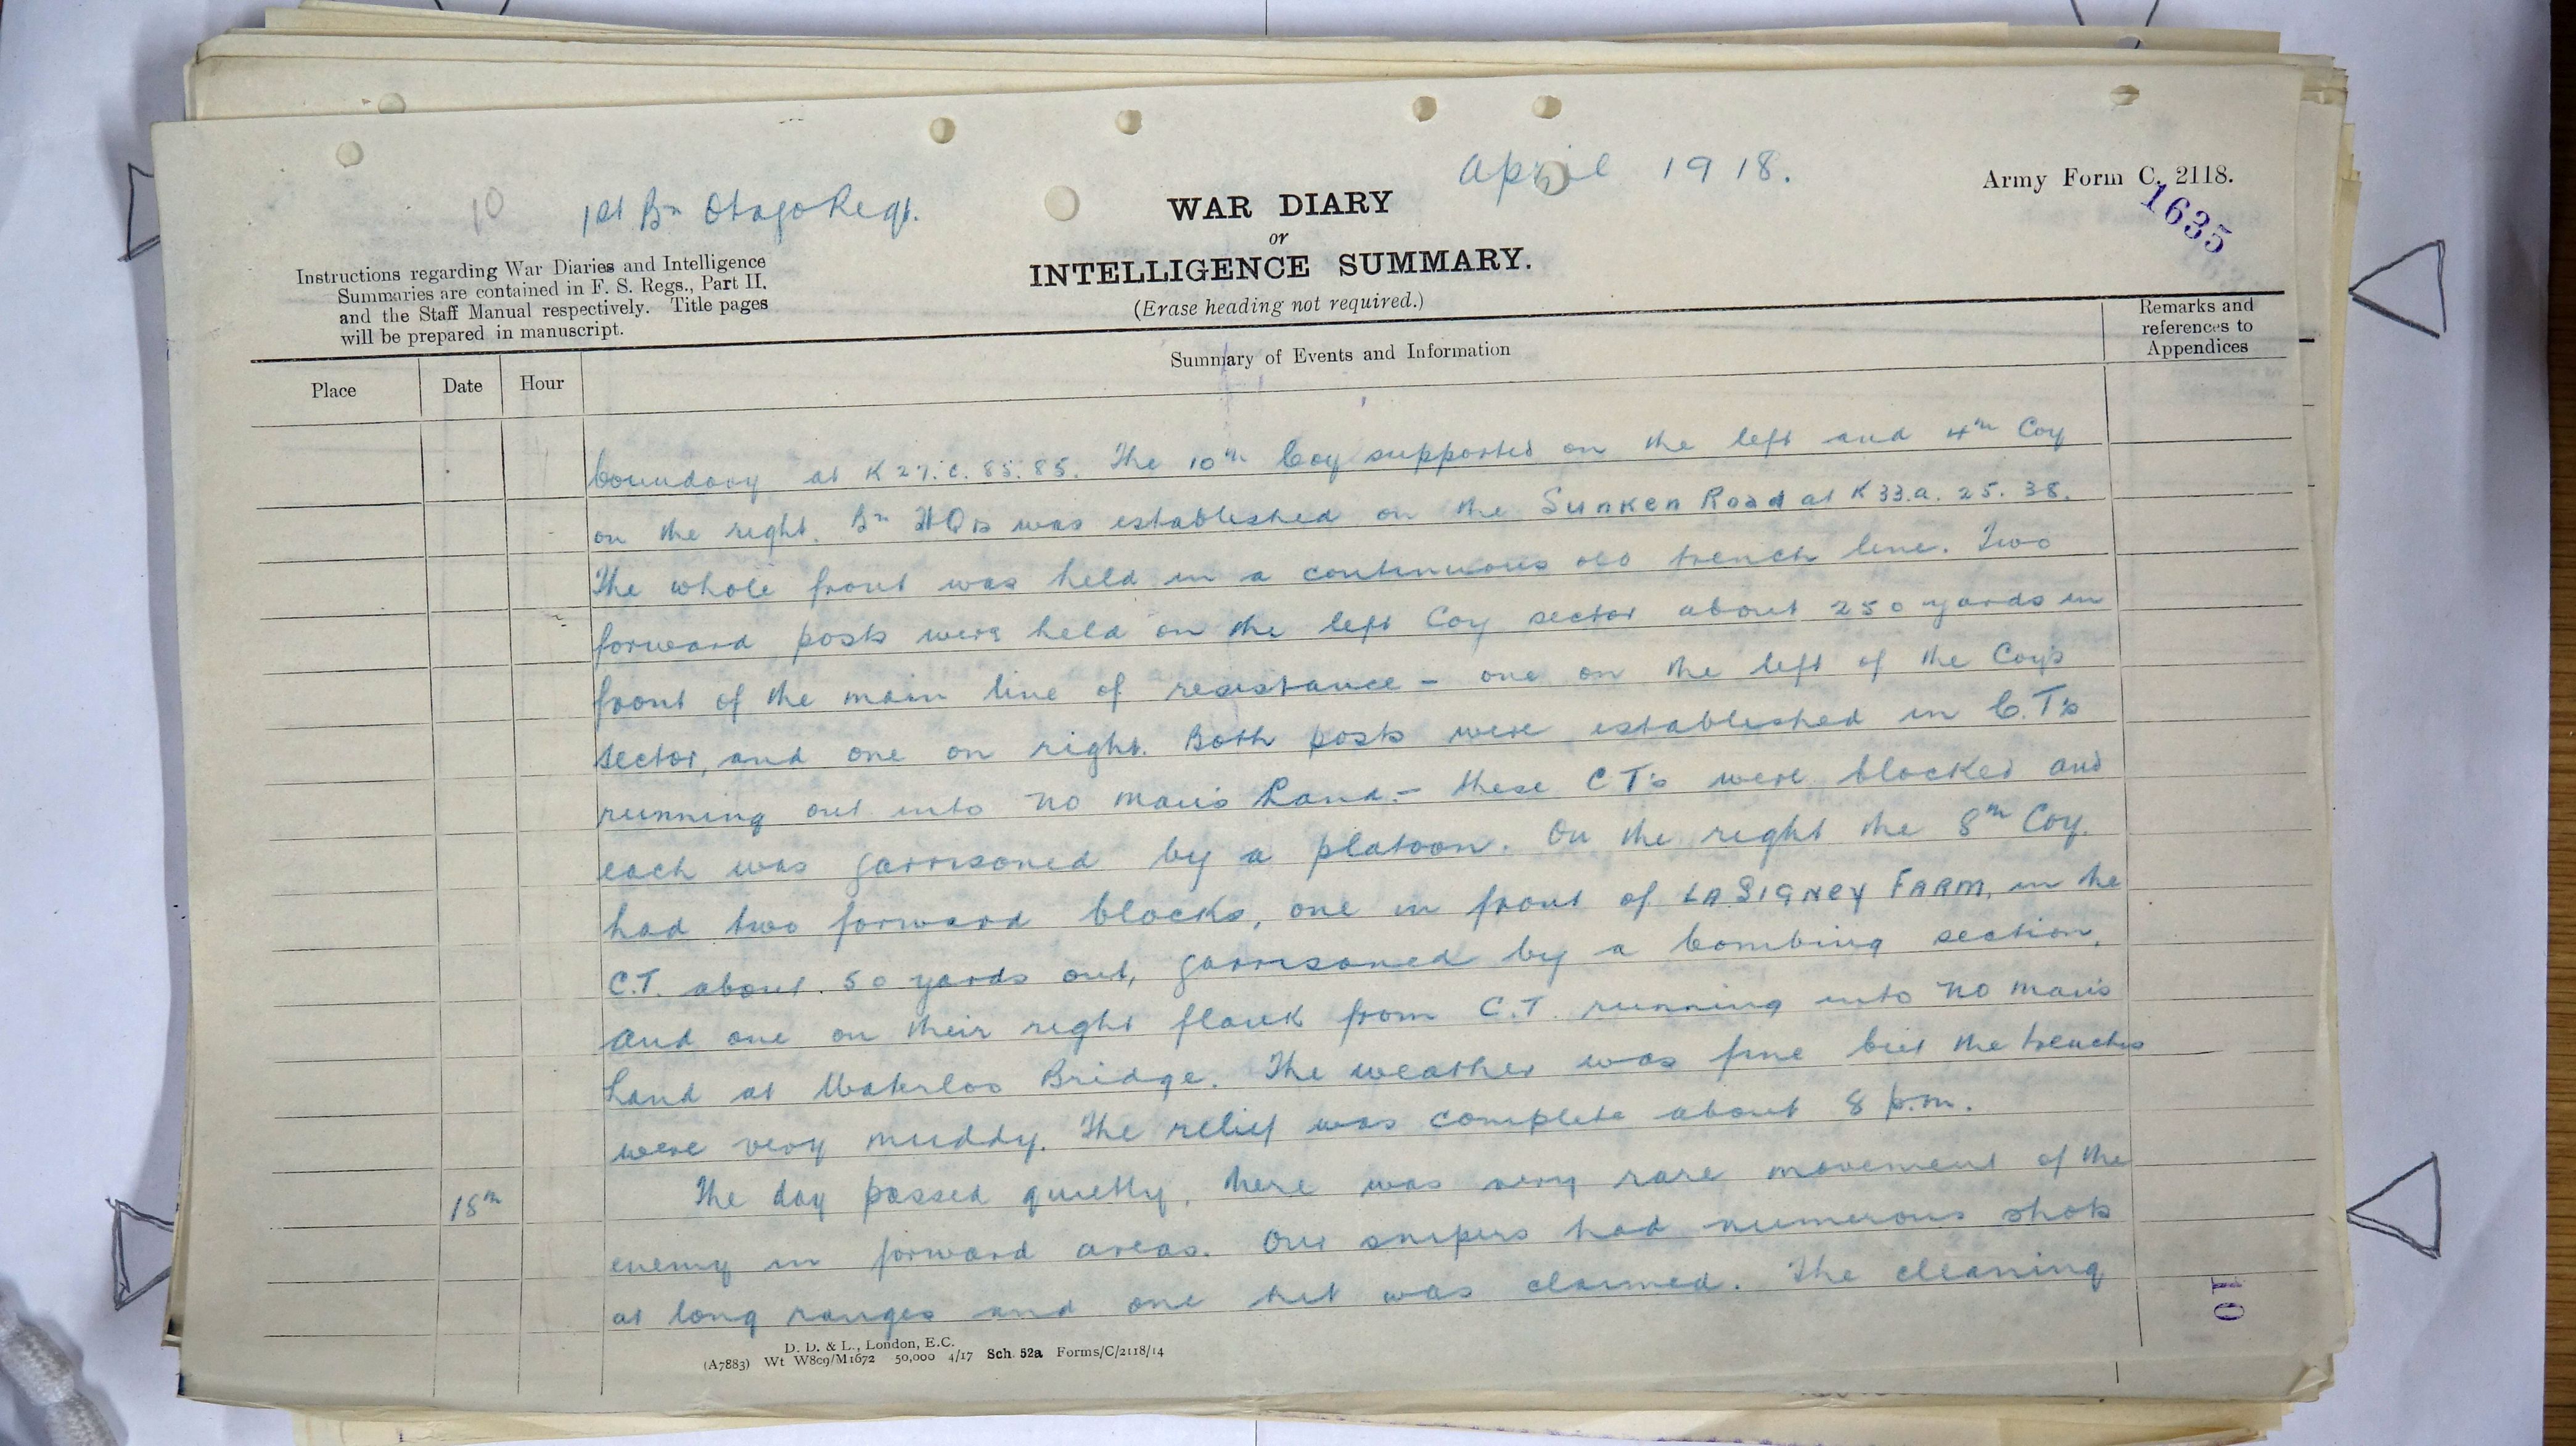 April 1918.
Army Form C. 2118.
1635
10
1st Bn Otago Regt.
WAR DIARY
or
INTELLIGENCE SUMMARY.
(Erase heading not required.)
Instructions regarding War Diaries and Intelligence
Summaries are contained in F. S. Regs., Part II,
and the Staff Manual respectively. Title pages
will be prepared in manuscript.
Place
Date
Hour
Summary of Events and Information
Remarks and
references to
Appendices
boundary at K 27. c. 85. 85. The 10th Coy supported on the left and 4th Coy
on the right. Bn HQrs was established on the Sunken Road at K 33.a. 25. 38.
The whole front was held in a continuous old trench line. Two
forward posts were held on the left Coy sector about 250 yards in
front of the main line of resistance - one on the left of the Coy's
sector, and one on right. Both posts were established in C.T's
running out into No man's Land. - these C T's were blocked and
each was garrisoned by a platoon. On the right the 8th Coy.
had two forward blocks, one in front of LA SIGNEY FARM, in the
C.T. about 50 yards out, garrisoned by a bombing section,
and one on their right flank from C.T. running into No man's
Land at Waterloo Bridge. The weather was fine but the trenches
were very muddy. The relief was complete about 8 p.m.
18th The day passed quietly, there was very rare movement of the
enemy in forward areas. Our snipers had numerous shots
at long ranges and one hit was claimed. The cleaning
10
D. D. & L., London, E.C.
(A7883) Wt W809/M1672 50,000 4/17 Sch. 52a Forms/C/2118/14